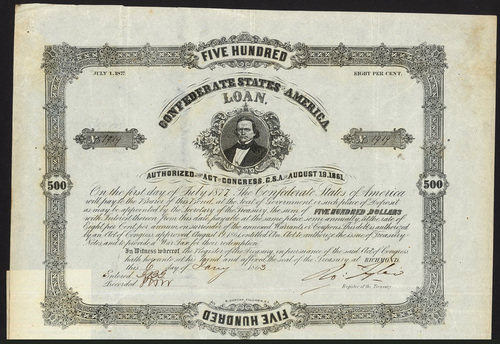 FIVE HUNDRED
JULY 1, 1877. EIGHT PER CENT.
CONFEDERATE STATES OF AMERICA
LOAN.
No
AUTHORIZED BY ACT OF CONGRESS, C.S.A. OF AUGUST 19, 1861.
500 500
On the first day of July 1877 The Confederate States of America
will pay to the Bearer of this Bond, at the Seat of Government or such place of Deposit
as may be appointed by the Secretary of the Treasury, the sum of FIVE HUNDRED DOLLARS
with Interest thereon from this date, payable at the same place, semi annually at the rate of
Eight per Cent per annum, on surrender of the annexed Warrants or Coupons. This debt is authorized
by an Act of Congress, approved August 19, 1861, entitled "An Act to authorize the issue of Treasury
Notes, and to provide a War Tax for their redemption."
In Witness whereof the Register of the Treasury, in pursuance of the said Act of Congress
hath hereunto set his hand and affixed the seal of the Treasury at RICHMOND,
this day of 1863
Entered
Recorded
Register of the Treasury
FIVE HUNDRED